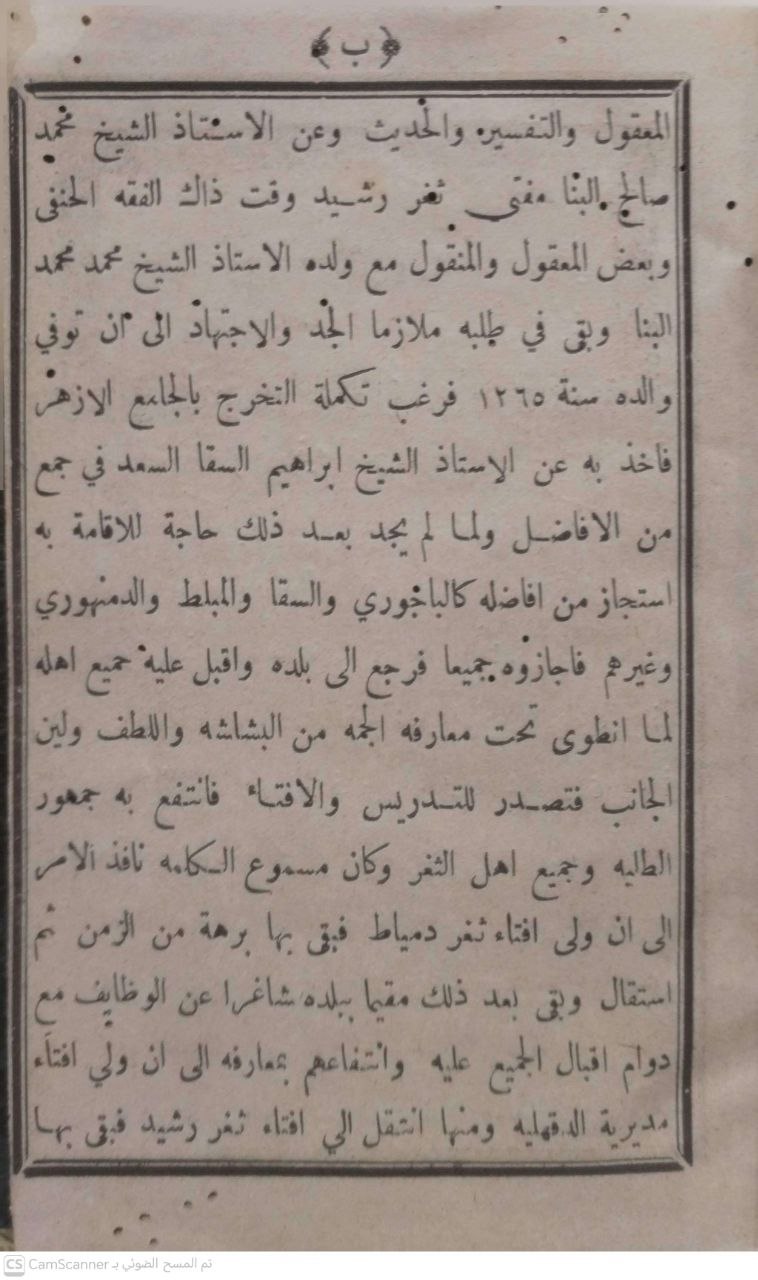 ﴿ ب ﴾
المعقول والتفسير والحديث وعن الاستاذ الشيخ محمد
صالح البنا مفتى ثغر رشيد وقت ذاك الفقه الحنفى
وبعض المعقول والمنقول مع ولده الاستاذ الشيخ محمد محمد
البنا وبقى في طلبه ملازما الجد والاجتهاد الى ان توفي
والده سنة ١٢٦٥ فرغب تكملة التخرج بالجامع الازهر
فاخذ به عن الاستاذ الشيخ ابراهيم السقا السعد في جمع
من الافاضل ولما لم يجد بعد ذلك حاجة للاقامة به
استجاز من افاضله كالباجوري والسقا والمبلط والدمنهوري
وغيرهم فاجازوه جميعا فرجع الى بلده واقبل عليه جميع اهله
لما انطوى تحت معارفه الجمه من البشاشه واللطف ولين
الجانب فتصدر للتدريس والافتاء فانتفع به جمهور
الطلبه وجميع اهل الثغر وكان مسموع الكلمه نافذ الامر
الى ان ولى افتاء ثغر دمياط فبقى بها برهة من الزمن ثم
استقال وبقى بعد ذلك مقيما ببلده شاغرا عن الوظايف مع
دوام اقبال الجميع عليه وانتفاعهم بمعارفه الى ان ولي افتاء
مديرية الدقهليه ومنها انتقل الي افتاء ثغر رشيد فبقى بها
CS CamScanner تم المسح الضوئي بـ